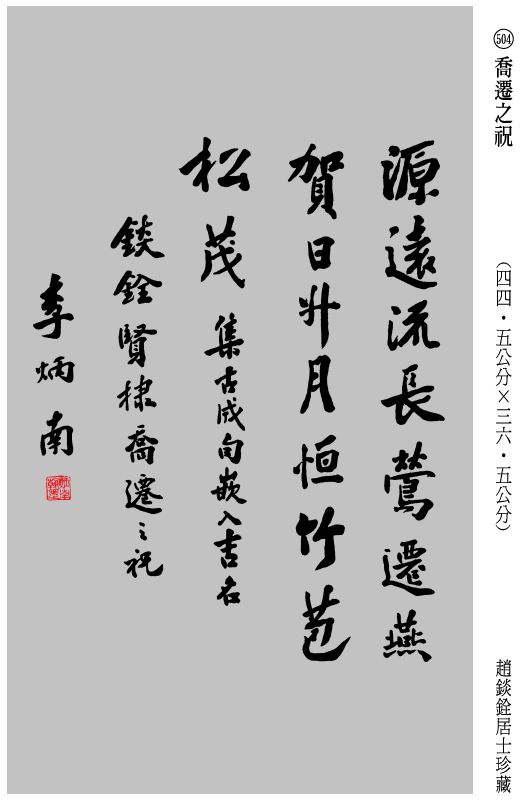 504 喬遷之祝
（四四．五公分×三六．五公分）
趙錟銓居士珍藏
源遠流長鶯遷燕
賀日升月恒竹苞
松茂 集古成句嵌入吉名
錟銓賢棣喬遷之祝
李炳南